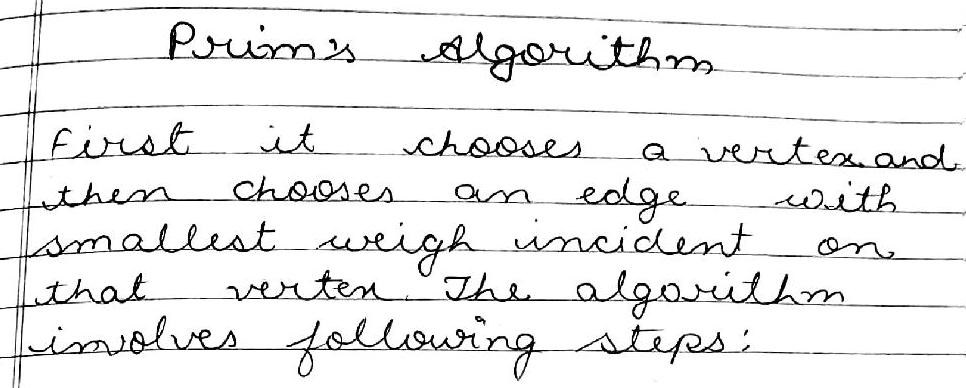 Prim's Algorithm
First it chooses a vertex and
then chooses an edge with
smallest weigh incident on
that vertex. The algorithm
involves following steps: